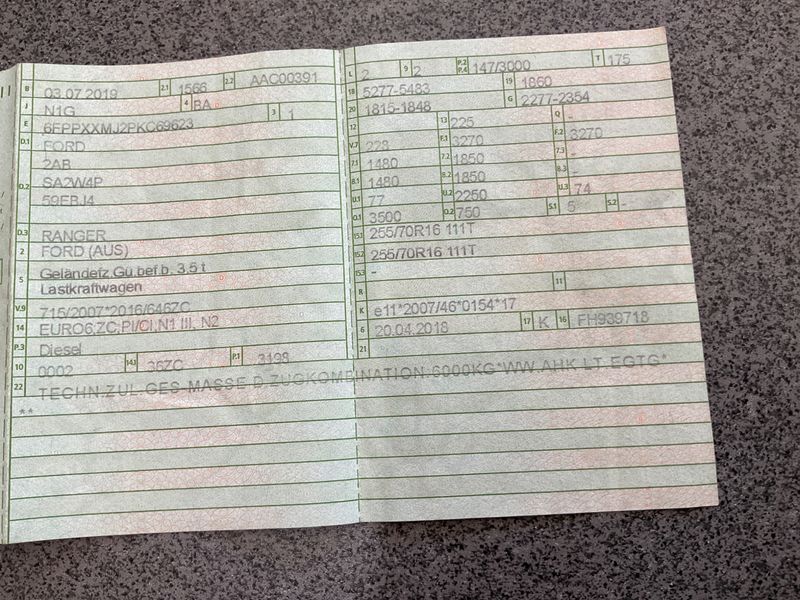 B 03.07.2019 2.1 1566 2.2 AAC00391
J N1G 4 BA 3 1
E 6FPPXXMJ2PKC69623
D.1 FORD
2AB
D.2 SA2W4P
59EBJ4
D.3 RANGER
2 FORD (AUS)
5 Geländefz.Gü bef.b. 3.5 t
Lastkraftwagen
V.9 715/2007*2016/646ZC
14 EURO6;ZC;PI/CI,N1 III, N2
P.3 Diesel
10 0002 14.1 36ZC P.1 3198
22 TECHN.ZUL.GES.MASSE D.ZUGKOMBINATION:6000KG*WW.AHK LT.EGTG*
**
L 2 9 2 P.2 P.4 147/3000 T 175
18 5277-5483 19 1860
20 1815-1848 G 2277-2354
12 - 13 225 Q -
V.7 228 F.1 3270 F.2 3270
7.1 1480 7.2 1850 7.3 -
8.1 1480 8.2 1850 8.3 -
U.1 77 U.2 2250 U.3 74
O.1 3500 O.2 750 S.1 5 S.2 -
15.1 255/70R16 111T
15.2 255/70R16 111T
15.3 -
R 11
K e11*2007/46*0154*17
6 20.04.2018 17 K 16 FH939718
21